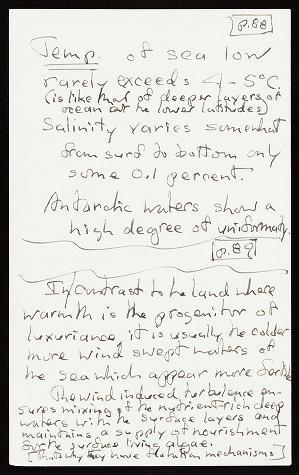 p.88
Temp. of sea low
rarely exceeds 4-5°C.
(is like that of deeper layers of
ocean at the lower latitudes)
Salinity varies somewhat
from surf to bottom only
some 0.1 percent.
Antarctic waters show a
high degree of uniformity.
p.89
In contrast to the land where
warmth is the progenitor of
luxuriance, it is usually the colder
more wind swept waters of
the sea which appear more fertile
The wind induced turbulence en-
sures mixing of the nutrient-rich deep
waters with the surface layers and
maintains a supply of nourishment
for the surface living algae.
[That is why they have flotation mechanisms]